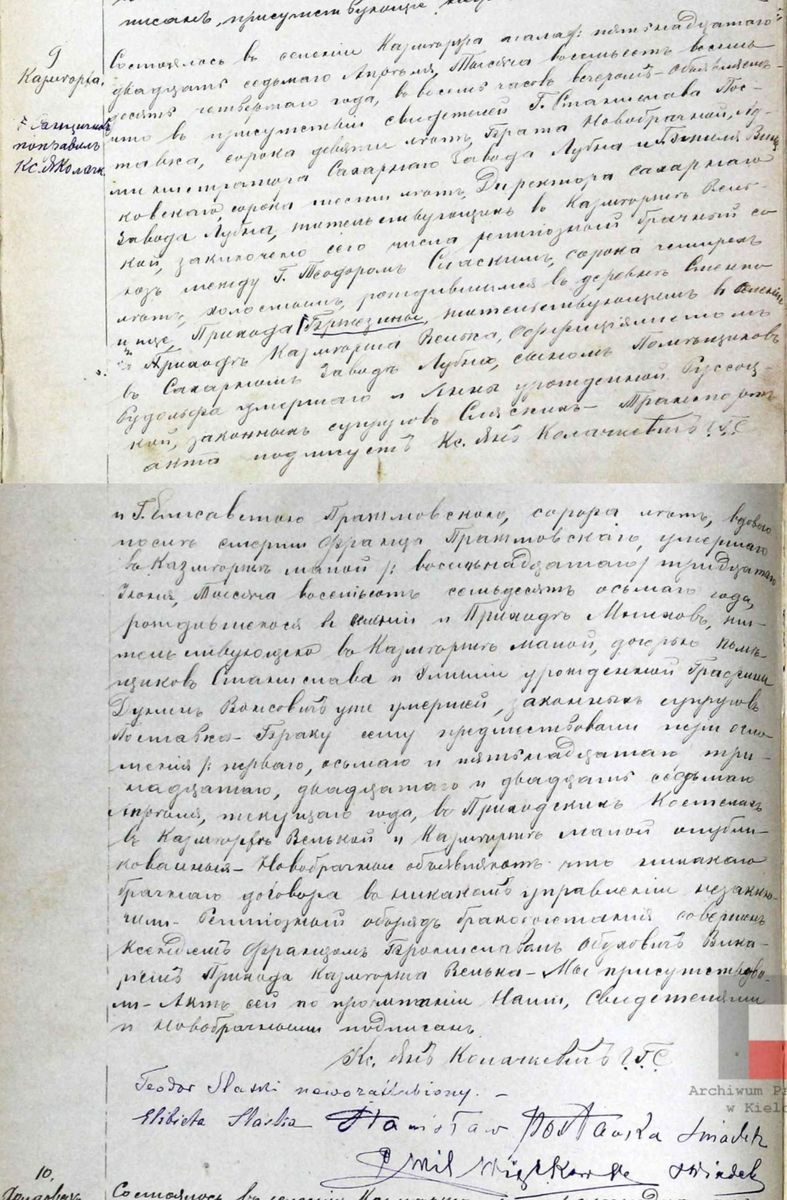 писанъ, присутствующие
9
Казмгоржа.
Состоялось въ селеніи Казмгоржа малая: пятьнадцатаго
двадцать седьмаго Апрѣля, Тысяча восемьсотъ восемь
десять четвертаго года, въ восемь часовъ вечеромъ – Объявляемъ
что въ присутствіи свидетелей Г. Станислава Пос-
тавка, сорока девяти лѣтъ, брата Новобрачной, Ад-
министратора Сахарнаго Завода Лубна и Эмиля Винц
ковскаго, сорока шести лѣтъ, Директора сахарнаго
Завода Лубна, жительствующихъ въ Казмгоржѣ Вель-
кой, заключено сего числа религіозный брачный со
юзъ между Г. Теодоромъ Сласкимъ, сорока четырехъ
лѣтъ, холостымъ, родившимся въ деревнѣ
Прихода жительствующимъ въ селеніи
и Приходѣ Казмгоржа Велька, Оффиціялистомъ
въ Сахарномъ Заводѣ Лубна, сыномъ Помѣщиковъ
Рудольфа умершаго и Анны урожденной Руссоц-
кой, законныхъ супруговъ Сласкихъ –
акта подписуетъ Кс. Янъ Колачкевичъ Ч.Г.С.
поправилъ
Кс. Я Колачк
и Г. Елисаветою Пражмовскою, сорока лѣтъ, вдовою
послѣ смерти Франца Пражмовскаго, умершаго
въ Казмгоржѣ малой /: восемьнадцатаго / тридцатаго
Іюня, Тысяча восемьсотъ семьдесятъ осьмаго года,
рождившеюся въ селеніи и Приходѣ Мнихов, жи-
тельствующею въ Казмгоржѣ малой, дочерью Помѣ-
щиковъ Станислава и Эмиліи урожденной Графини
Дунинъ Вонсовичъ уже умершей, законныхъ супруговъ
Поставка – Браку сему предшествовали три огла-
шенія /: перваго, осьмаго и пятьнадцатаго три-
надцатаго, двадцатаго и двадцать седьмаго
Апрѣля, текущаго года, въ Приходскихъ Костелахъ
въ Казмгоржѣ Велькой и Казмгоржѣ малой опубли-
кованныя – Новобрачные объявляютъ что никакаго
брачнаго договора въ никакомъ управленіи незаклю-
чили – Религіозный обрядъ бракосочетанія совершенъ
Ксендземъ Францомъ Брониславомъ Обуховичъ Вика-
ріемъ Прихода Казмгоржа Велька – Мы присутствова-
ли – Актъ сей по прочитаніи Нами, Свидѣтелями
и Новобрачными подписанъ
Кс. Янъ Колачкевичъ Ч.Г.С.
Teodor Slaski nowozaślubiony. –
Elżbieta Slaska Stanisław Postawka świadek
Emil Więckowski świadek
Archiwum Pa
w Kielc
10.
Состоялось въ селеніи